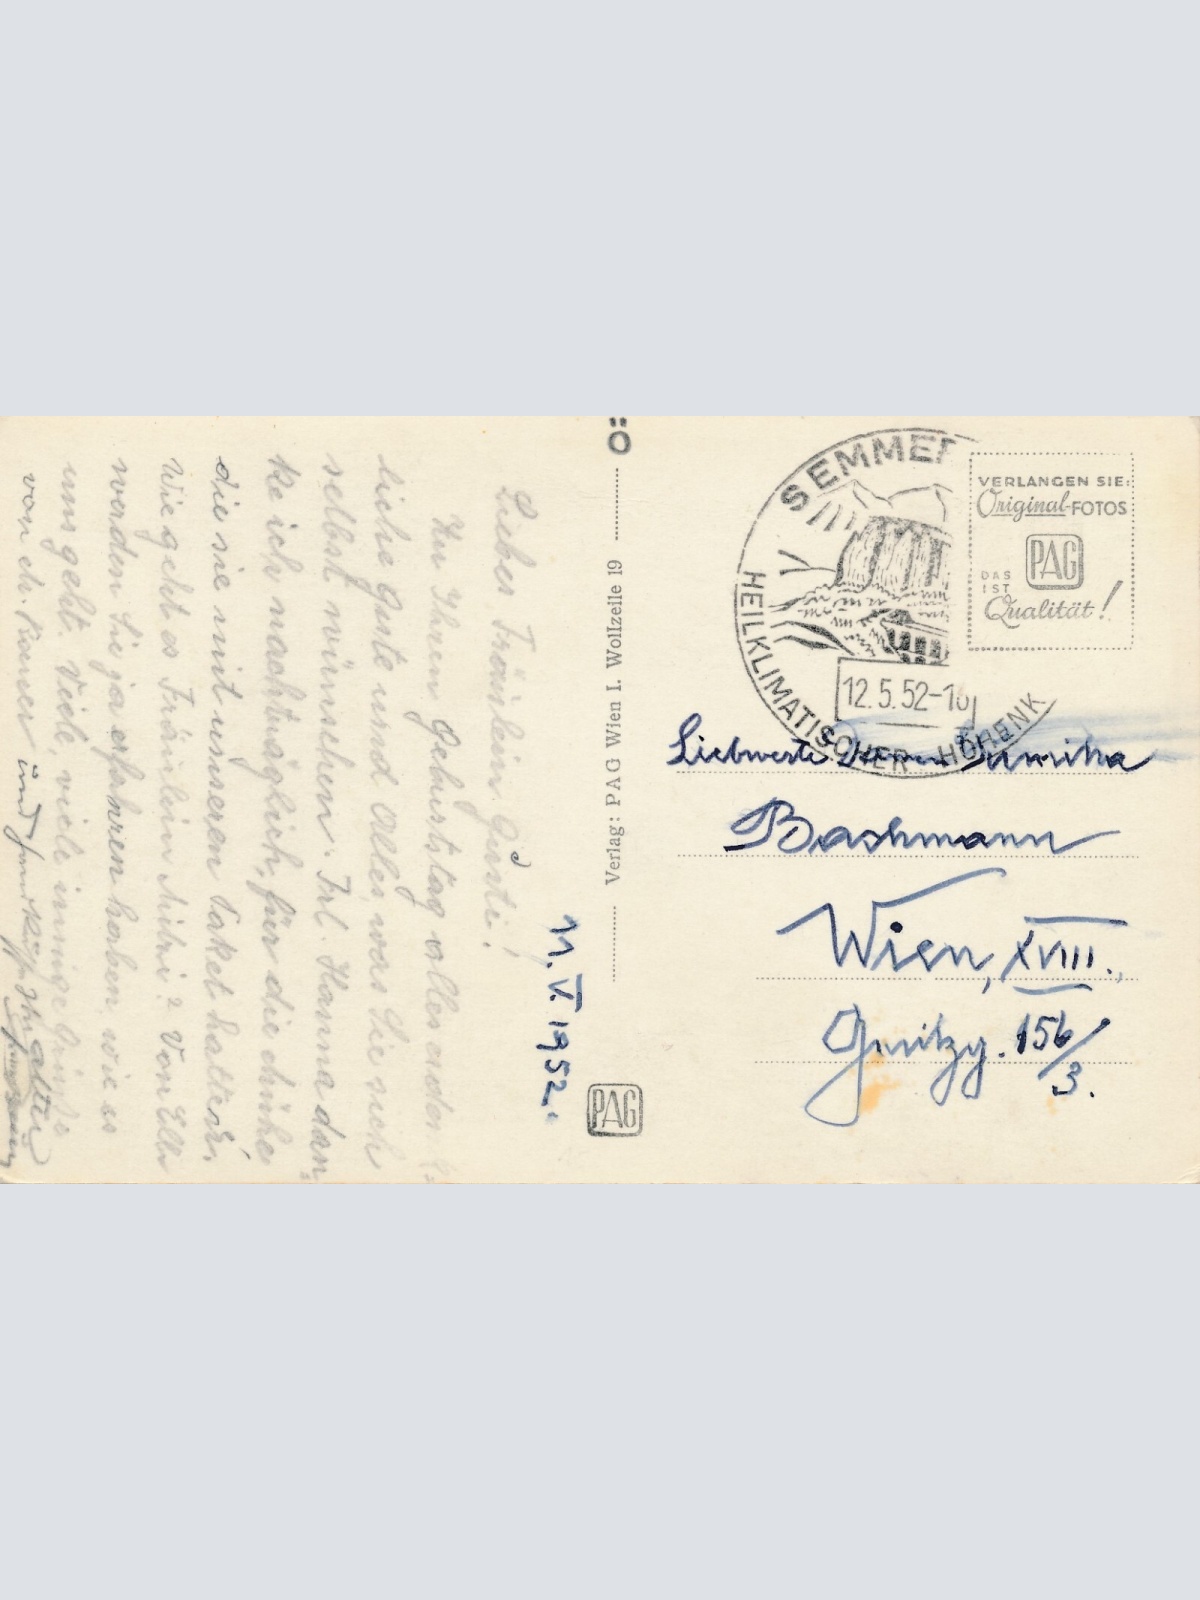 Ö
SEMMER
HEILKLIMATISCHER HÖHENK
12.5.52-16
VERLANGEN SIE:
Original-FOTOS
PAG
DAS
IST
Qualität!
Liebwerte
Bachmann
Wien, XVIII.,
156/3.
Verlag: PAG Wien I. Wollzeile 19
PAG
11. V. 1952.
Liebes Fräulein Gusti!
Zu Ihrem Geburtstag alles erdenk=
liche Gute und Alles, was Sie sich
selbst wünschen. Frl. Hanna dan=
ke ich nachträglich, für die Mühe
die sie mit unseren Paket hatte.
Wie geht es Fräulein Mitzi? Von Elli
werden Sie ja erfahren haben, wie es
uns geht. Viele, viele innige Grüße
von
und